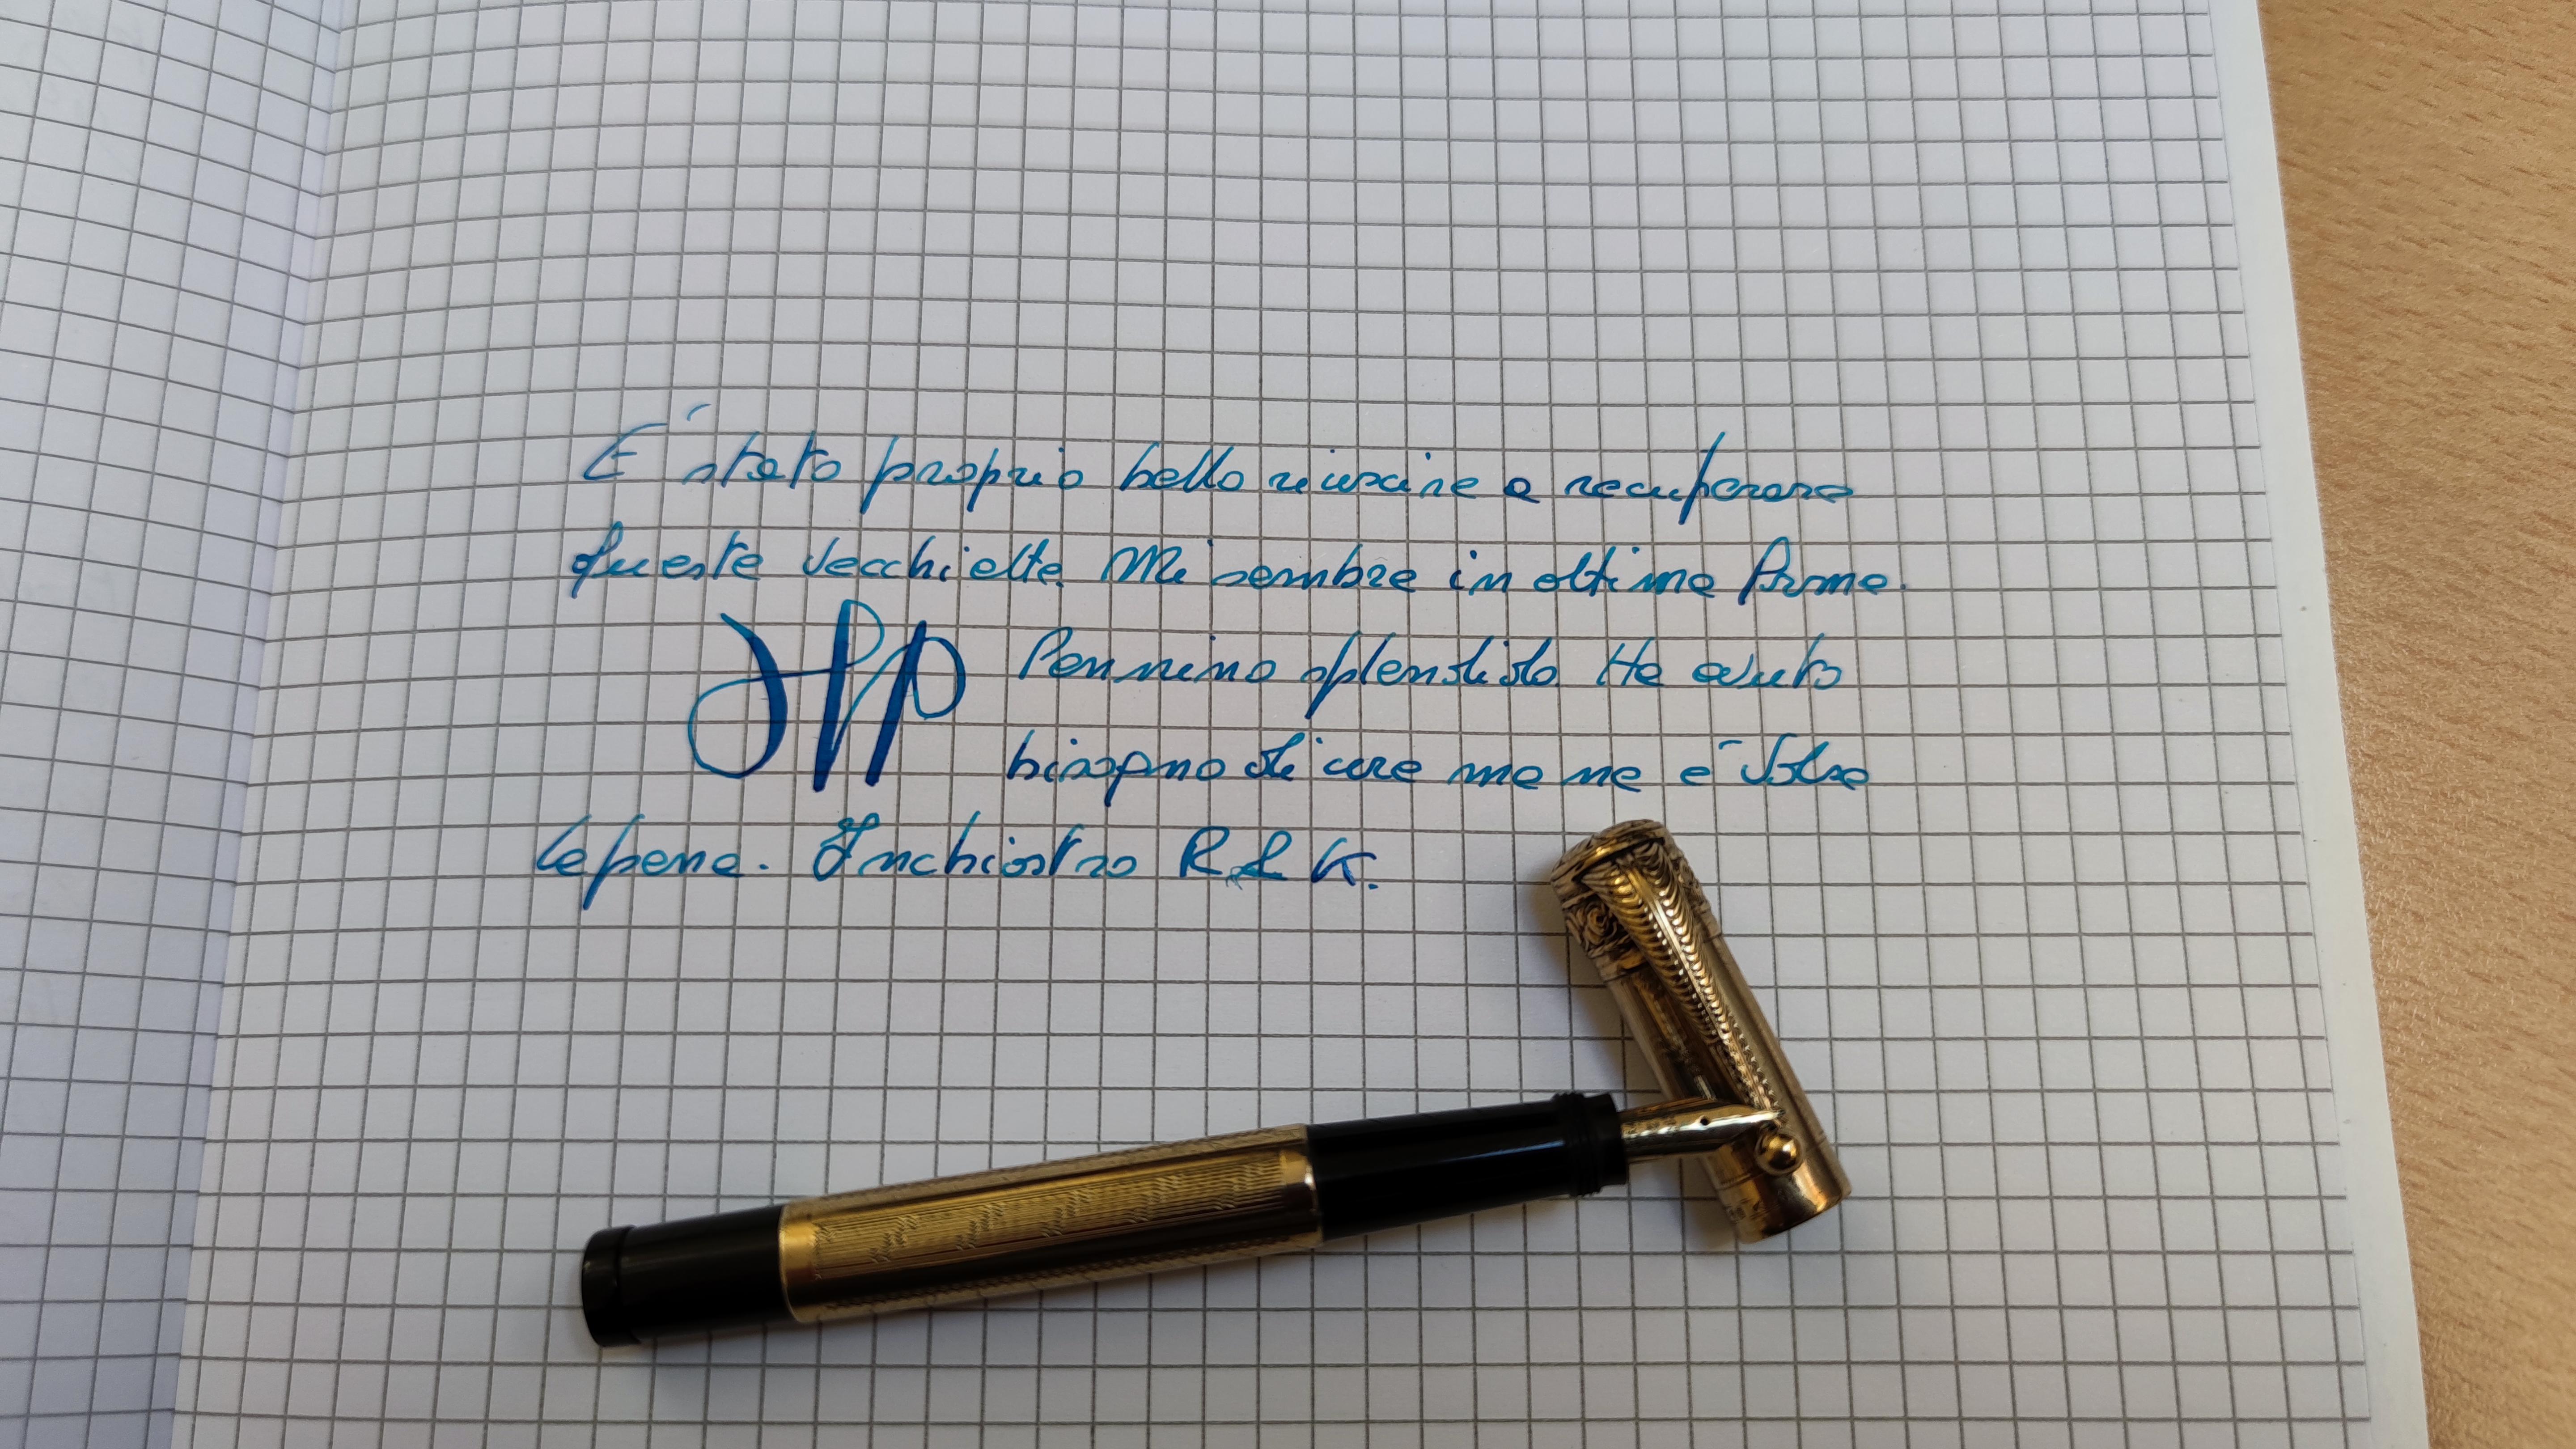 E' stato proprio bello riuscire a recuperare
questa vecchietta. Mi sembra in ottima forma.
Pennino splendido. Ha avuto
bisogno di cure ma ne è valsa
la pena. Inchiostro R&K.